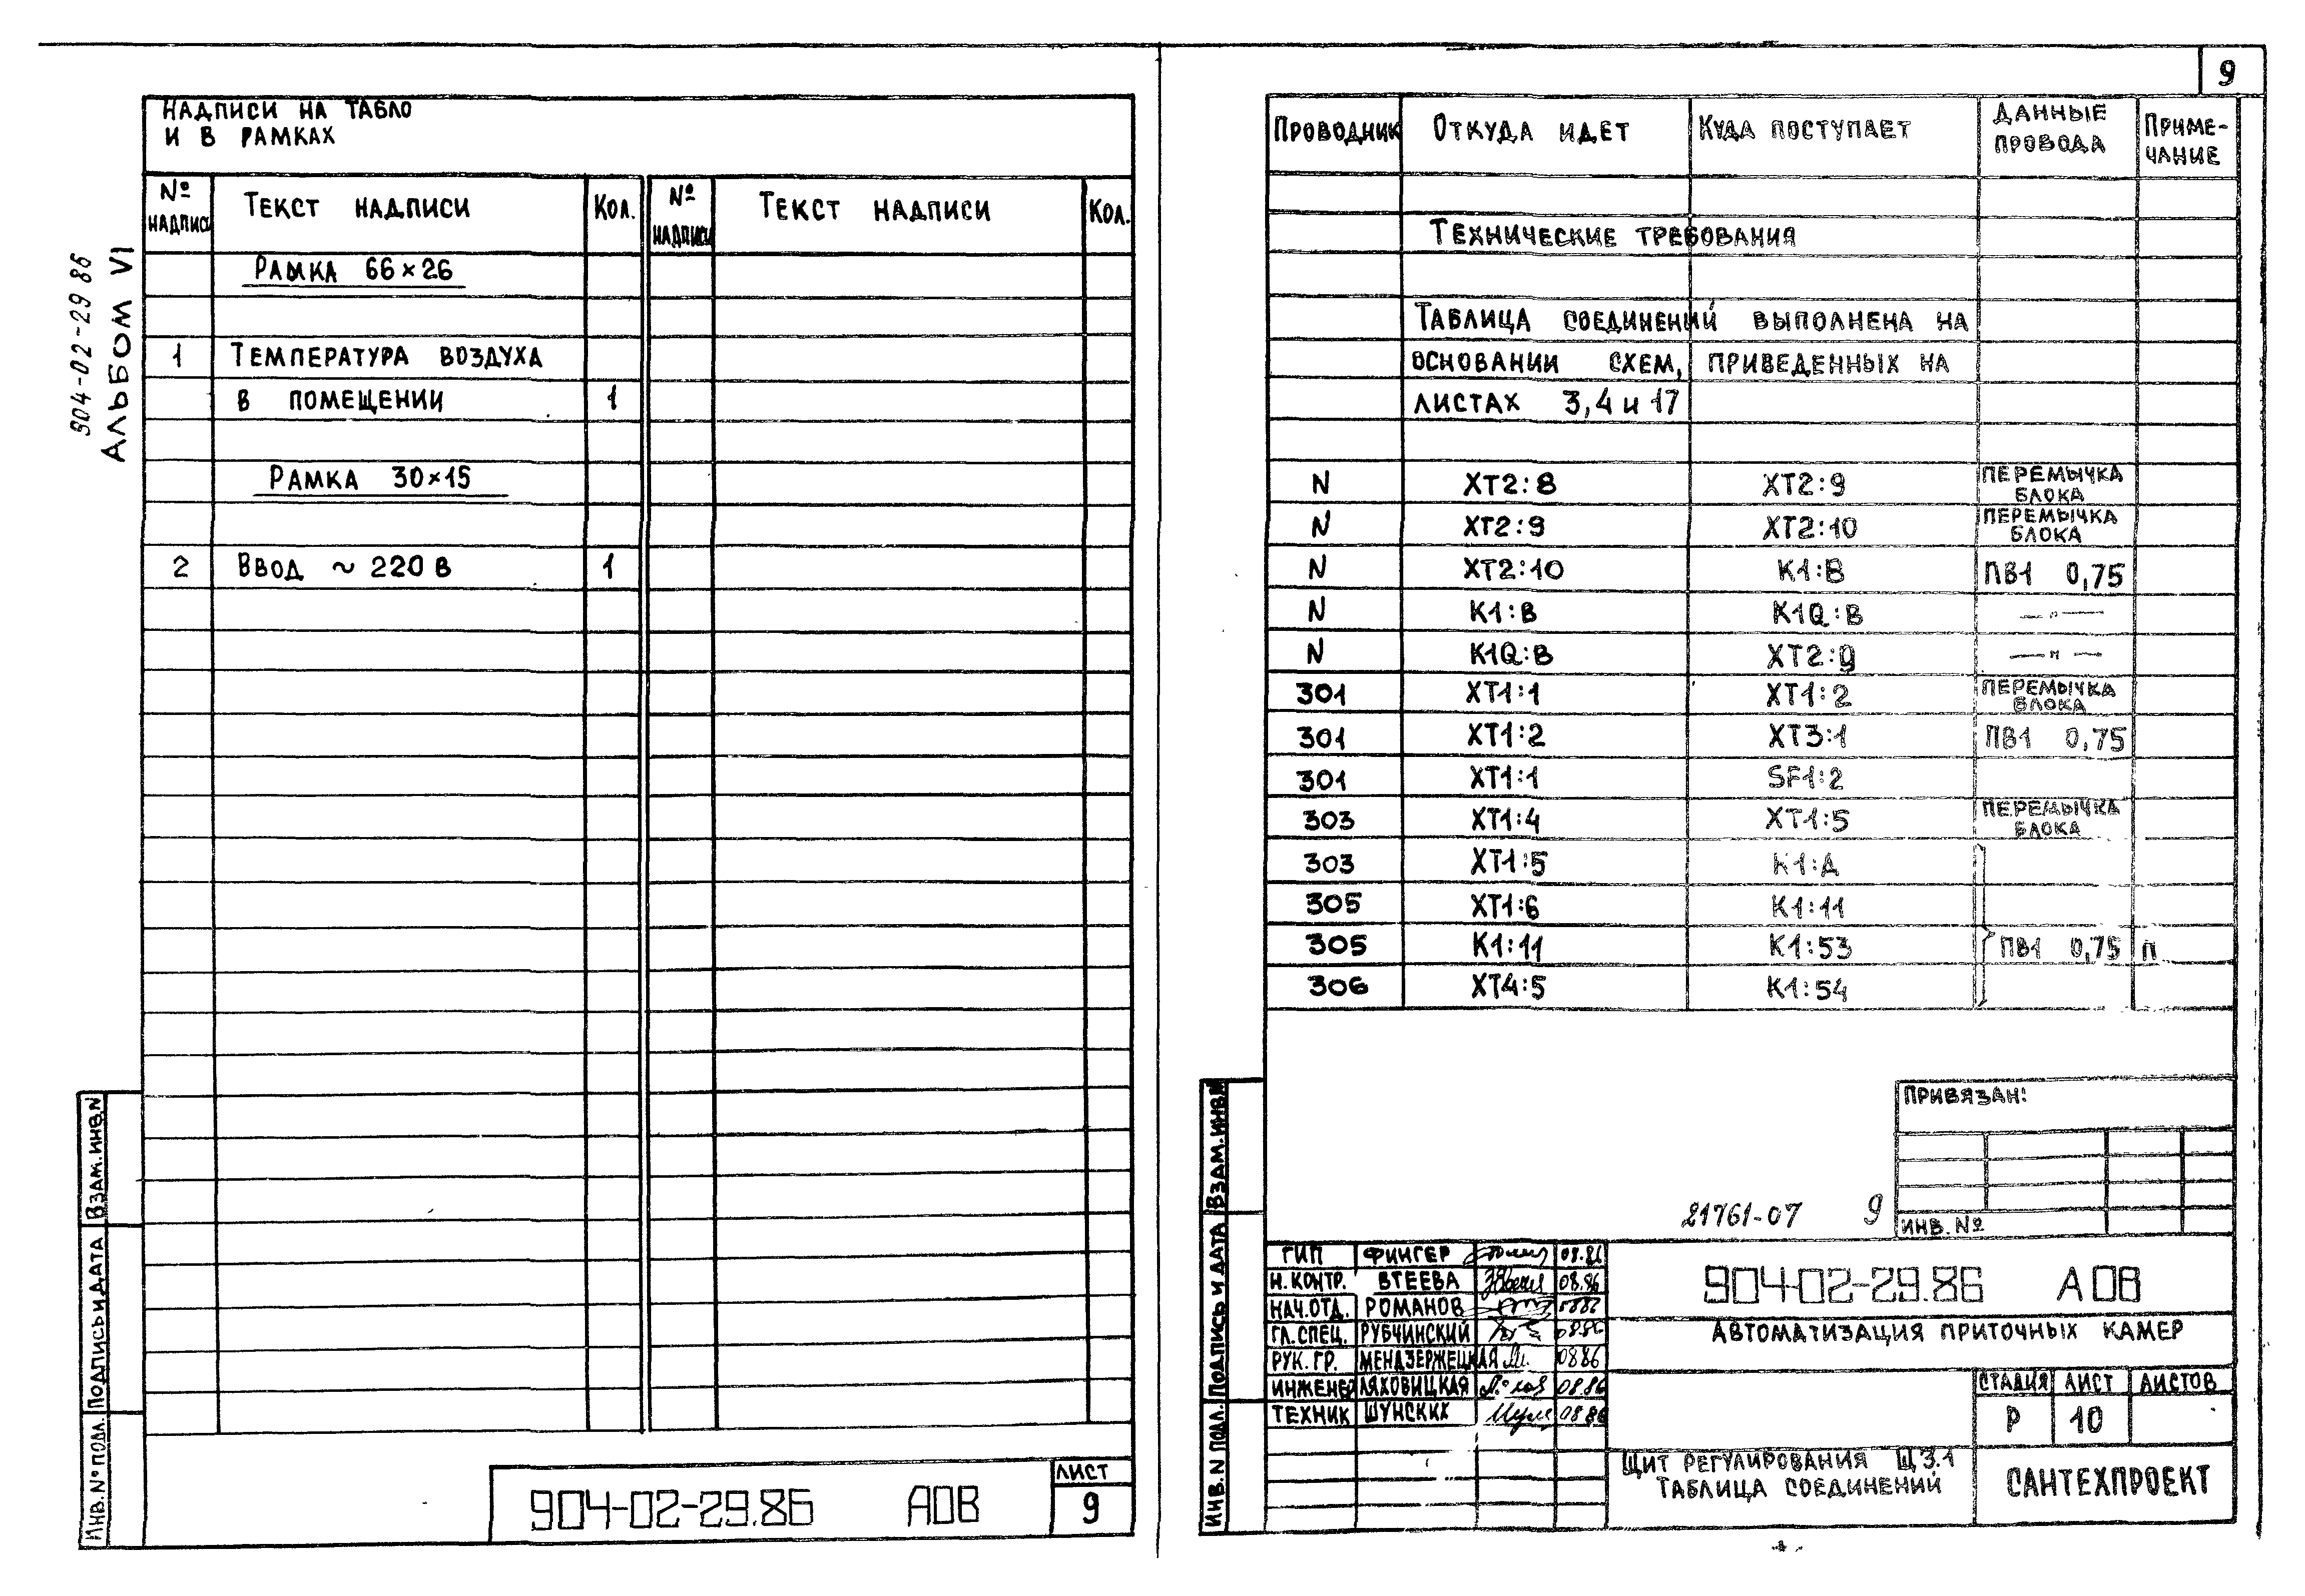 904-02-29 86
АЛЬБОМ VI
НАДПИСИ НА ТАБЛО
И В РАМКАХ
№ НАДПИСИ ТЕКСТ НАДПИСИ КОЛ. № НАДПИСИ ТЕКСТ НАДПИСИ КОЛ.
РАМКА 66×26
1 ТЕМПЕРАТУРА ВОЗДУХА
В ПОМЕЩЕНИИ 1
РАМКА 30×15
2 ВВОД ~ 220 В 1
ВЗАМ.ИНВ.N
ПОДПИСЬ И ДАТА
ИНВ.№ ПОДЛ.
904-02-29.86 АОВ
ЛИСТ
9
9
ПРОВОДНИК ОТКУДА ИДЕТ КУДА ПОСТУПАЕТ ДАННЫЕ ПРОВОДА ПРИМЕ-ЧАНИЕ
ТЕХНИЧЕСКИЕ ТРЕБОВАНИЯ
ТАБЛИЦА СОЕДИНЕНИЙ ВЫПОЛНЕНА НА
ОСНОВАНИИ СХЕМ, ПРИВЕДЕННЫХ НА
ЛИСТАХ 3,4 И 17
N XT2:8 XT2:9 ПЕРЕМЫЧКА БЛОКА
N XT2:9 XT2:10 ПЕРЕМЫЧКА БЛОКА
N XT2:10 K1:B ПВ1 0,75
N K1:B K1Q:B —"—
N K1Q:B XT2:9 —"—
301 XT1:1 XT1:2 ПЕРЕМЫЧКА БЛОКА
301 XT1:2 XT3:1 ПВ1 0,75
301 XT1:1 SF1:2
303 XT1:4 XT1:5 ПЕРЕМЫЧКА БЛОКА
303 XT1:5 K1:A
305 XT1:6 K1:11
305 K1:11 K1:53 ПВ1 0,75 П
306 XT4:5 K1:54
ВЗАМ.ИНВ.N
ПОДПИСЬ И ДАТА
ИНВ.N ПОДЛ.
ПРИВЯЗАН:
ИНВ. №
21761-07 9
ГИП ФИНГЕР 08.86
Н.КОНТР. ВТЕЕВА 08.86
НАЧ.ОТД. РОМАНОВ
ГЛ.СПЕЦ. РУБЧИНСКИЙ 08.86
РУК.ГР. МЕНДЗЕРЖЕЦКАЯ 0886
ИНЖЕНЕР ЛЯХОВИЦКАЯ 08.86
ТЕХНИК ШУНСКИХ 0886
904-02-29.86 АОВ
АВТОМАТИЗАЦИЯ ПРИТОЧНЫХ КАМЕР
СТАДИЯ ЛИСТ ЛИСТОВ
Р 10
ЩИТ РЕГУЛИРОВАНИЯ ЩЗ.1
ТАБЛИЦА СОЕДИНЕНИЙ
САНТЕХПРОЕКТ